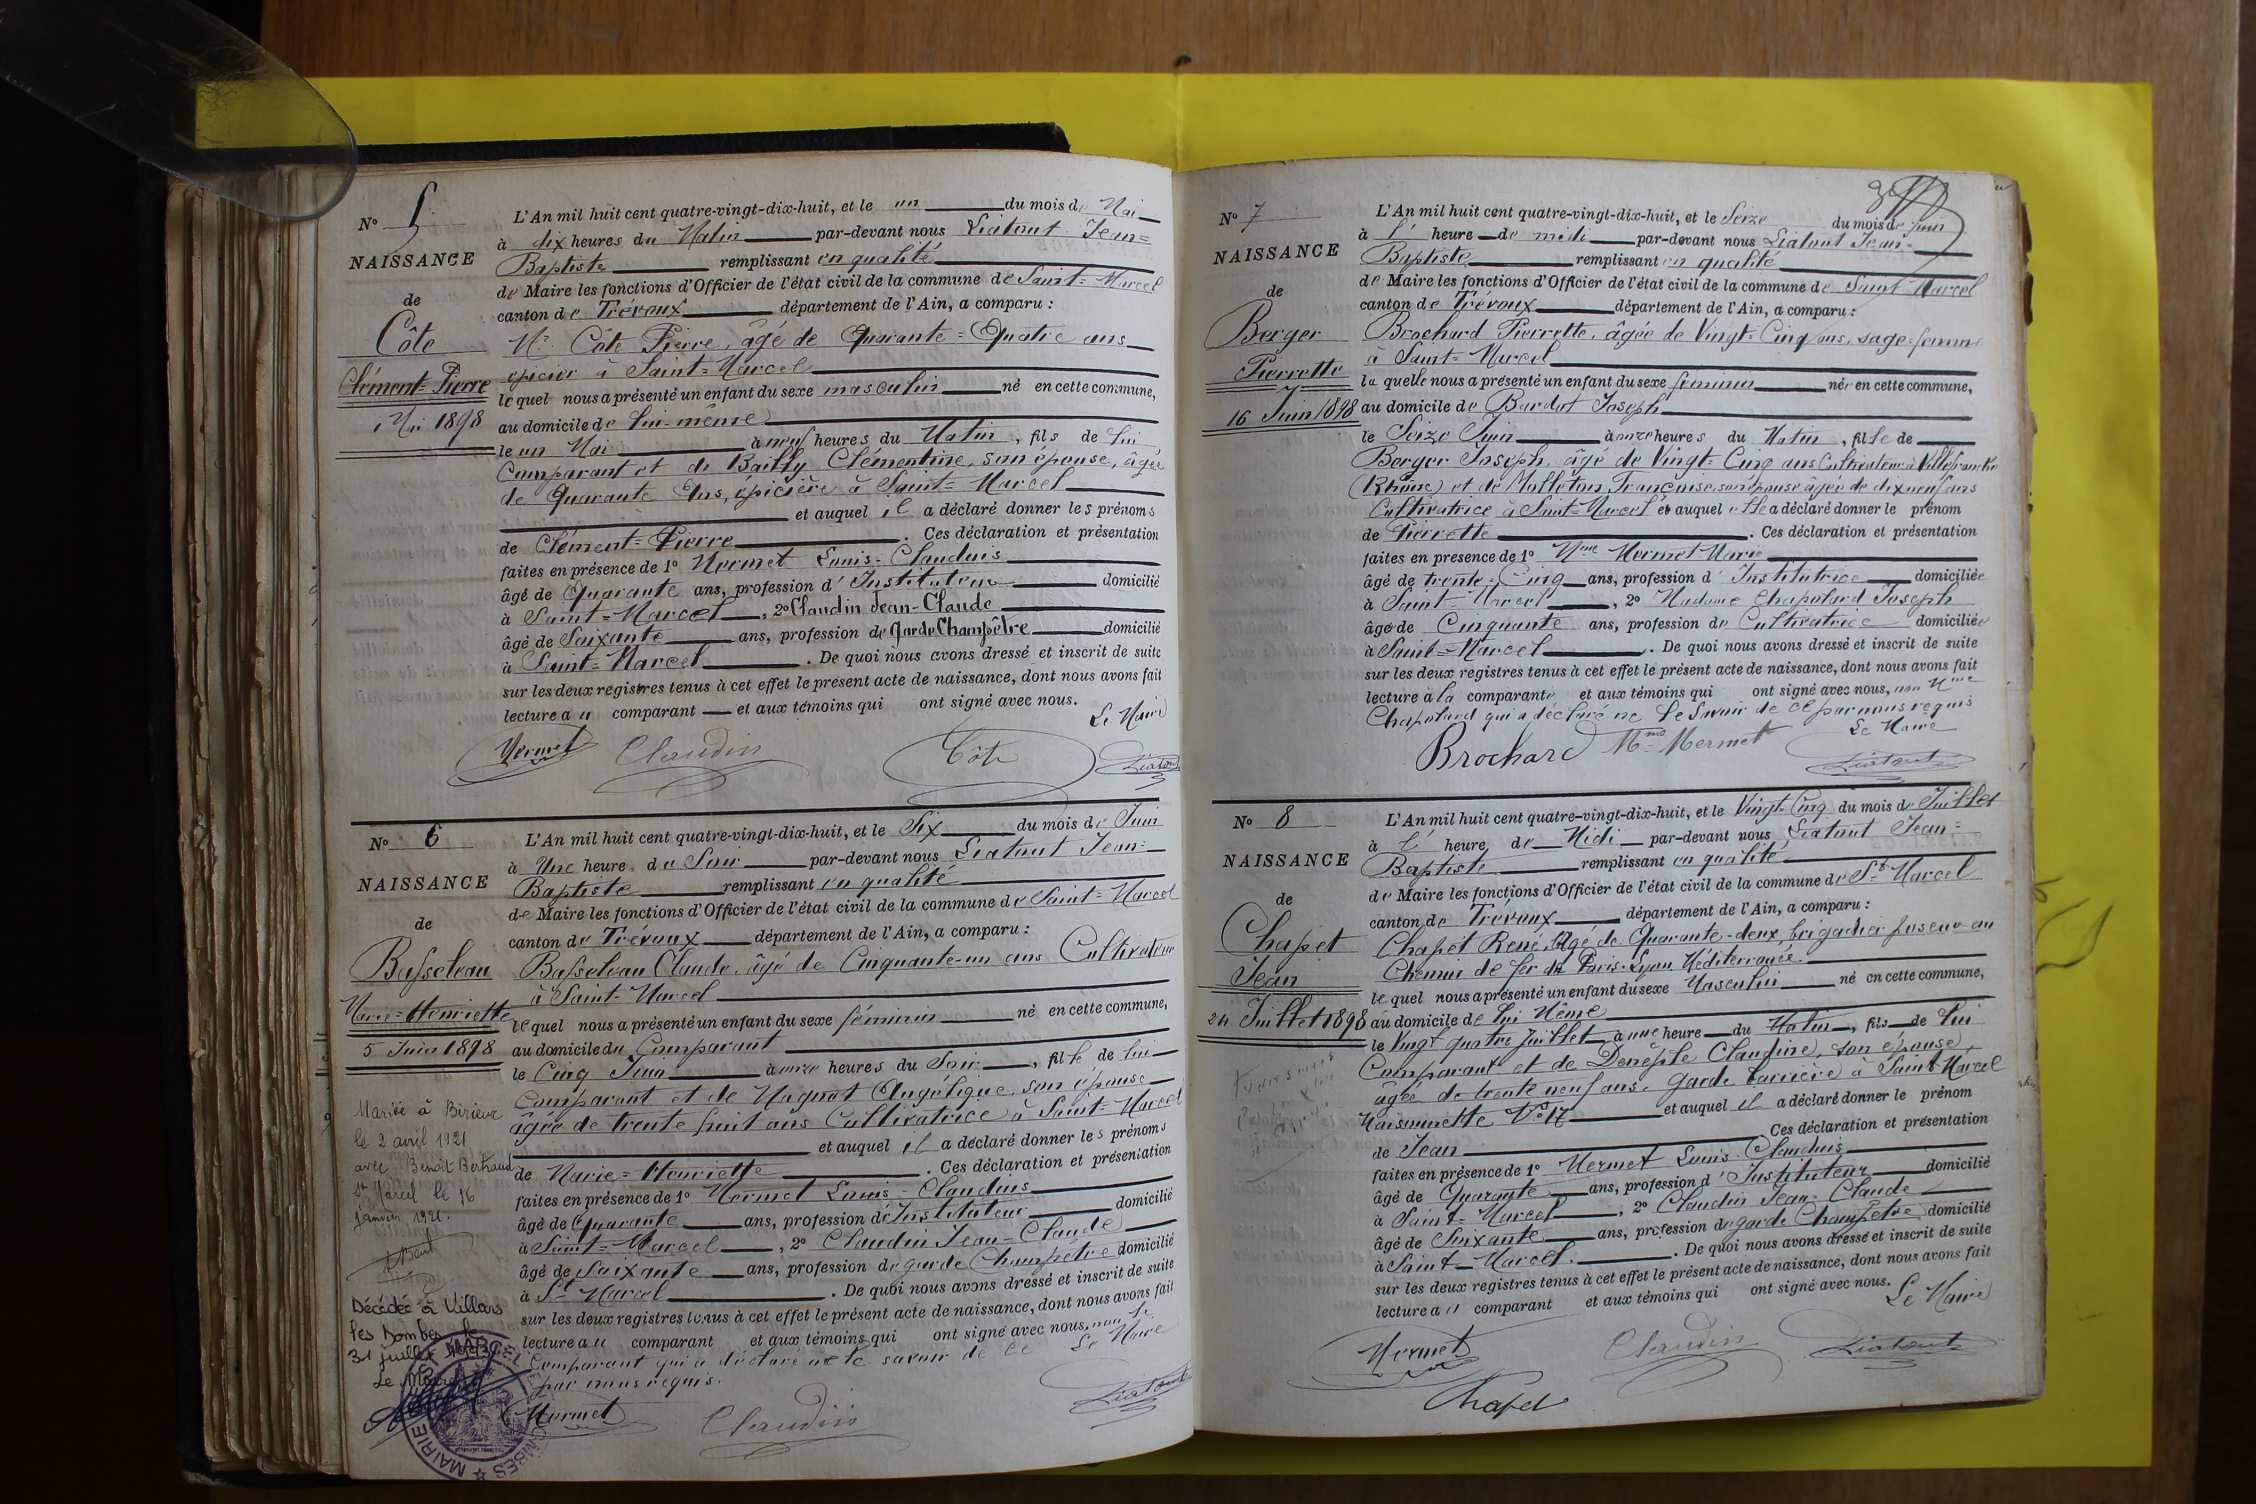 N° 5
NAISSANCE
de
Côte
Clément=Pierre
1 Mai 1898
L'An mil huit cent quatre-vingt-dix-huit, et le un du mois de Mai
à dix heures du Matin par-devant nous Liatout Jean=
Baptiste remplissant en qualité
de Maire les fonctions d'Officier de l'état civil de la commune de Saint=Marcel
canton de Trévoux département de l'Ain, a comparu :
Mr Côte Pierre, âgé de Quarante=Quatre ans
épicier à Saint=Marcel
lequel nous a présenté un enfant du sexe masculin né en cette commune,
au domicile de lui-même
le un Mai à neuf heures du Matin, fils de lui
Comparant et de Bailly Clémentine, son épouse, âgée
de Quarante Ans, épicière à Saint=Marcel
et auquel il a déclaré donner les prénoms
de Clément=Pierre. Ces déclaration et présentation
faites en présence de 1° Mermet Louis-Claudius
âgé de Quarante ans, profession d'Instituteur domicilié
à Saint=Marcel, 2° Claudin Jean-Claude
âgé de Soixante ans, profession de garde Champêtre domicilié
à Saint=Marcel. De quoi nous avons dressé et inscrit de suite
sur les deux registres tenus à cet effet le présent acte de naissance, dont nous avons fait
lecture au comparant et aux témoins qui ont signé avec nous.
Le Maire
Mermet Claudin Côte Liatout
N° 6
NAISSANCE
de
Basseleau
Marie=Henriette
5 Juin 1898
Mariée à Birieux
le 2 avril 1921
avec Benoît Bertraud
St Marcel le 16
janvier 1921.
Décédée à Villars
les Dombes le
31 juillet
Le Maire
L'An mil huit cent quatre-vingt-dix-huit, et le Six du mois de Juin
à Une heure du Soir par-devant nous Liatout Jean=
Baptiste remplissant en qualité
de Maire les fonctions d'Officier de l'état civil de la commune de Saint=Marcel
canton de Trévoux département de l'Ain, a comparu :
Basseleau Claude, âgé de Cinquante-un ans Cultivateur
à Saint=Marcel
lequel nous a présenté un enfant du sexe féminin né en cette commune,
au domicile du Comparant
le Cinq Juin à onze heures du Soir, fille de lui
Comparant et de Angélique, son épouse
âgée de trente huit ans Cultivatrice à Saint=Marcel
et auquel il a déclaré donner les prénoms
de Marie=Henriette. Ces déclaration et présentation
faites en présence de 1° Mermet Louis-Claudius
âgé de Quarante ans, profession d'Instituteur domicilié
à Saint=Marcel, 2° Claudin Jean-Claude
âgé de soixante ans, profession de garde Champêtre domicilié
à St Marcel. De quoi nous avons dressé et inscrit de suite
sur les deux registres tenus à cet effet le présent acte de naissance, dont nous avons fait
lecture au comparant et aux témoins qui ont signé avec nous, non le
Comparant qui a déclaré ne le savoir de ce Le Maire
par nous requis.
Mermet Claudin Liatout
N° 7
NAISSANCE
de
Berger
Pierrette
16 Juin 1898
L'An mil huit cent quatre-vingt-dix-huit, et le Seize du mois de juin
à l' heure de midi par-devant nous Liatout Jean=
Baptiste remplissant en qualité
de Maire les fonctions d'Officier de l'état civil de la commune de Saint Marcel
canton de Trévoux département de l'Ain, a comparu :
Brochard Pierrette, âgée de Vingt=Cinq ans, sage-femme
à Saint=Marcel
laquelle nous a présenté un enfant du sexe féminin née en cette commune,
au domicile de Bardot Joseph
le Seize Juin à onze heures du Matin, fille de
Berger Joseph, âgé de Vingt=Cinq ans Cultivateur à Villefranche
(Rhône) et de Molleton Françoise, son épouse âgée de dix neuf ans
Cultivatrice à Saint=Marcel et auquel elle a déclaré donner le prénom
de Pierrette. Ces déclaration et présentation
faites en présence de 1° Mme Mermet Marie
âgé de trente=Cinq ans, profession d'Institutrice domiciliée
à Saint=Marcel, 2° Madame Chapolard Joseph
âgée de Cinquante ans, profession de Cultivatrice domiciliée
à Saint=Marcel. De quoi nous avons dressé et inscrit de suite
sur les deux registres tenus à cet effet le présent acte de naissance, dont nous avons fait
lecture à la comparante et aux témoins qui ont signé avec nous, non Mme
Chapolard qui a déclaré ne le savoir de ce par nous requis
Le Maire
Brochard Mme Mermet Liatout
N° 8
NAISSANCE
de
Chapet
Jean
24 Juillet 1898
L'An mil huit cent quatre-vingt-dix-huit, et le Vingt-Cinq du mois de Juillet
à l' heure de Midi par-devant nous Liatout Jean=
Baptiste remplissant en qualité
de Maire les fonctions d'Officier de l'état civil de la commune de St-Marcel
canton de Trévoux département de l'Ain, a comparu :
Chapet René, Agé de Quarante-deux, brigadier poseur au
Chemin de fer de Paris-Lyon Méditerranée.
lequel nous a présenté un enfant du sexe Masculin né en cette commune,
au domicile de lui Même
le Vingt quatre Juillet à une heure du Matin, fils de lui
Comparant et de Denèple Claudine, son épouse,
âgée de trente neuf ans, garde barrière à Saint-Marcel
Maisonnette N° 17 et auquel il a déclaré donner le prénom
de Jean Ces déclaration et présentation
faites en présence de 1° Mermet Louis-Claudius
âgé de Quarante ans, profession d'Instituteur domicilié
à Saint=Marcel, 2° Claudin Jean-Claude
âgé de Soixante ans, profession de garde Champêtre domicilié
à Saint-Marcel. De quoi nous avons dressé et inscrit de suite
sur les deux registres tenus à cet effet le présent acte de naissance, dont nous avons fait
lecture au comparant et aux témoins qui ont signé avec nous.
Le Maire
Mermet Claudin Liatout
Chapet